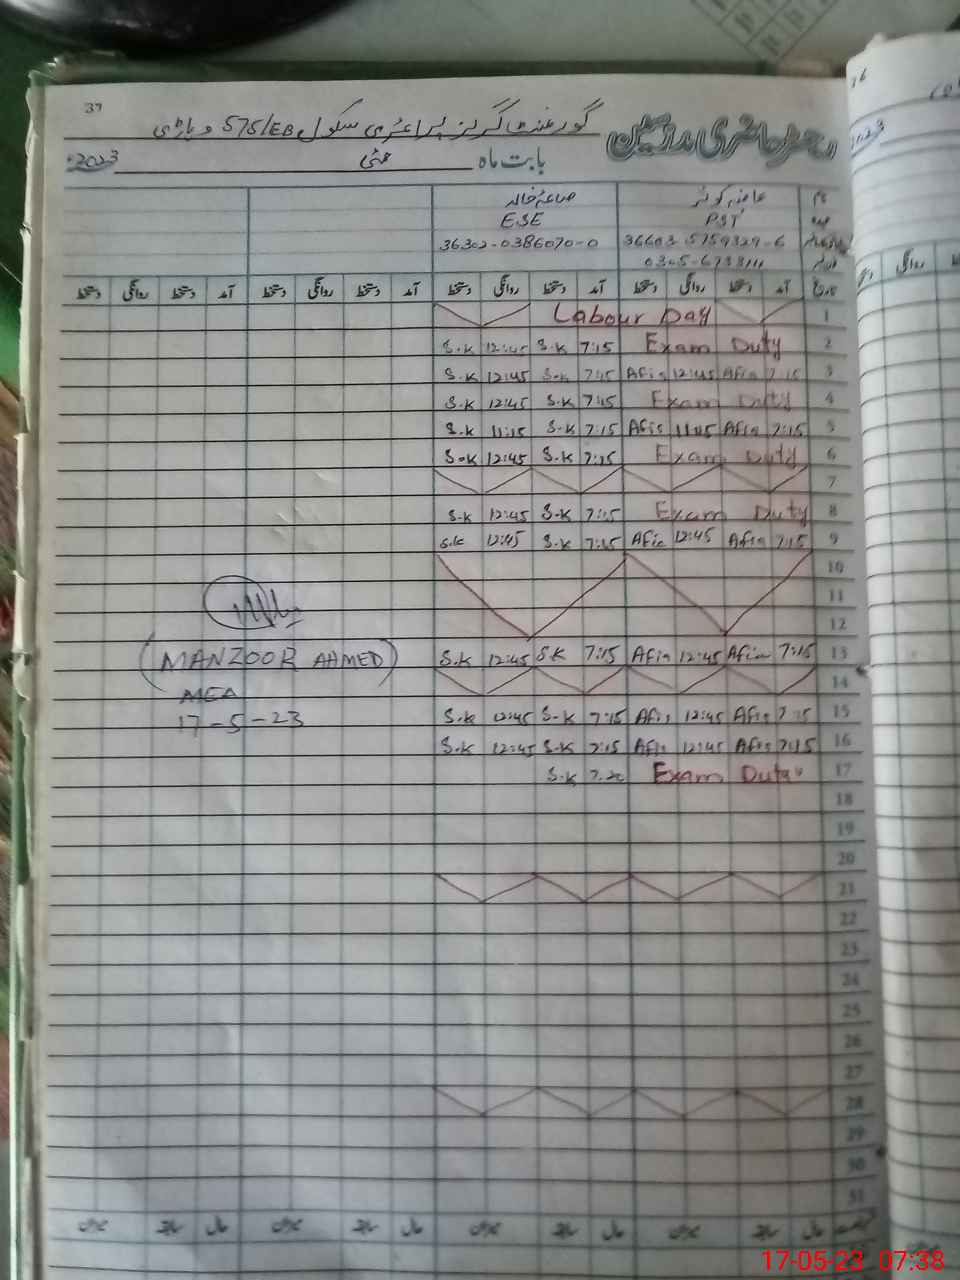 37
گورنمنٹ گرلز پرائمری سکول 575/EB وہاڑی
رجسٹر حاضری مدرسین
بابت ماہ مئی 2023ء
نام
صاعقہ خالد
عہدہ PST ESE
36603-5759329-6 36302-0386070-0
0305-6738111
تاریخ آمد دستخط روانگی دستخط آمد دستخط روانگی دستخط آمد دستخط روانگی دستخط آمد دستخط روانگی دستخط
Labour Day 1
S.K 12:45 S.K 7:15 Exam Duty 2
S.K 12:45 S.K 7:15 Afia 12:45 Afia 7:15 3
S.K 12:45 S.K 7:15 Exam Duty 4
S.K 11:15 S.K 7:15 Afia 11:15 Afia 7:15 5
S.K 12:45 S.K 7:15 Exam Duty 6
7
S.K 12:45 S.K 7:15 Exam Duty 8
S.K 12:45 S.K 7:15 Afia 12:45 Afia 7:15 9
10
11
12
S.K 12:45 S.K 7:15 Afia 12:45 Afia 7:15 13
14
S.K 12:45 S.K 7:15 Afia 12:45 Afia 7:15 15
S.K 12:45 S.K 7:15 Afia 12:45 Afia 7:15 16
S.K 7:20 Exam Duty 17
18
19
20
21
22
23
24
25
26
27
28
29
30
31
(MANZOOR AHMED)
MEA
17-5-23
حال سابقہ میزان حال سابقہ میزان حال سابقہ میزان حال سابقہ میزان
16
2023
روانگی
17-05-23 07:38